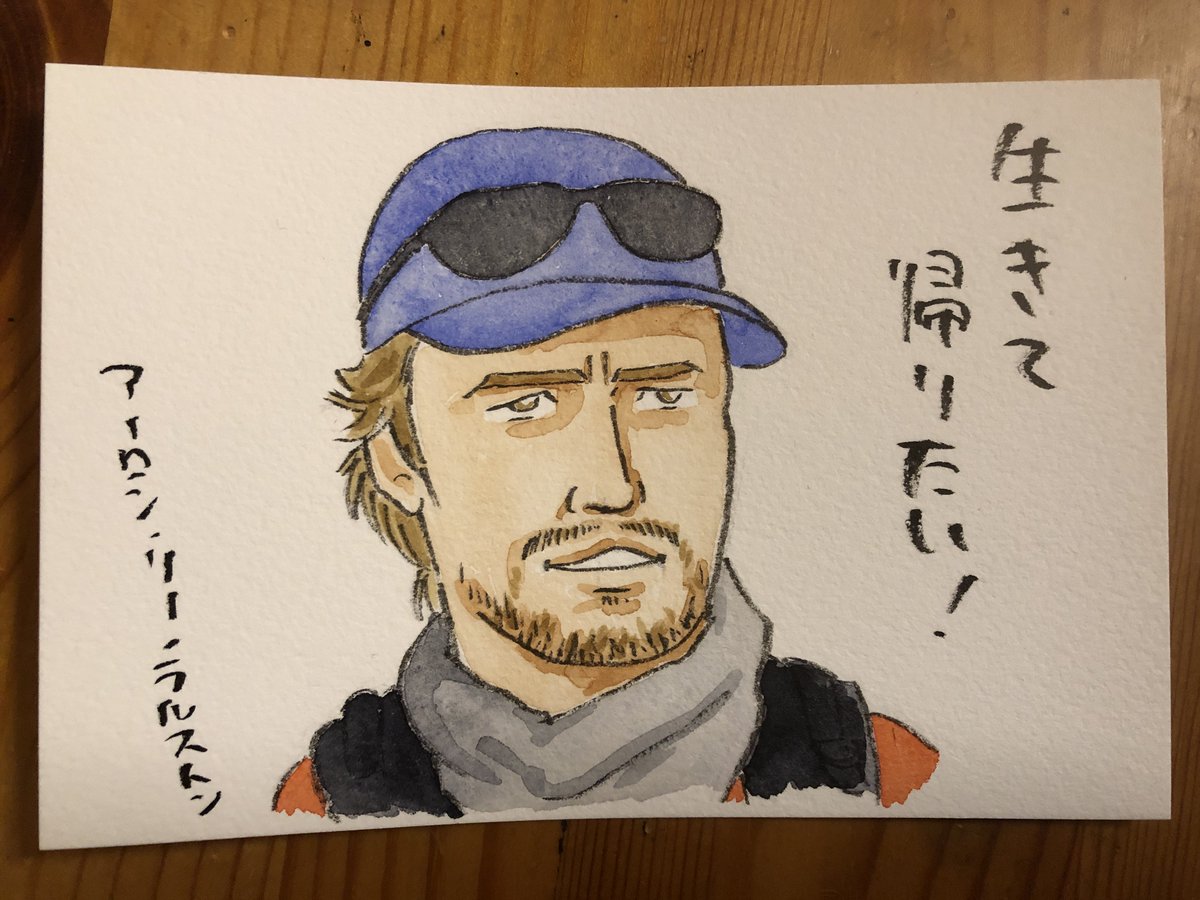 生きて
帰りたい!
アーロン・リー・ラルストン